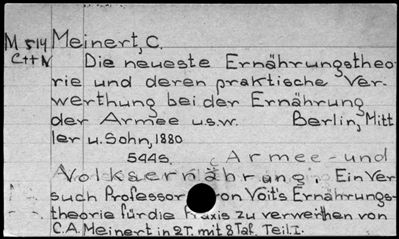 M 514 Meinert, C.
C++N Die neueste Ernährungstheo
rie und deren praktische Ver-
werthung bei der Ernährung
der Armee u.s.w. Berlin, Mitt
ler u. Sohn, 1880
544s. (Armee- und
Volksernährung. Ein Ver
such Professor von Voit's Ernährungs-
theorie für die Praxis zu verwerthen von
C. A. Meinert in 2T. mit 8 Taf. Teil. I.